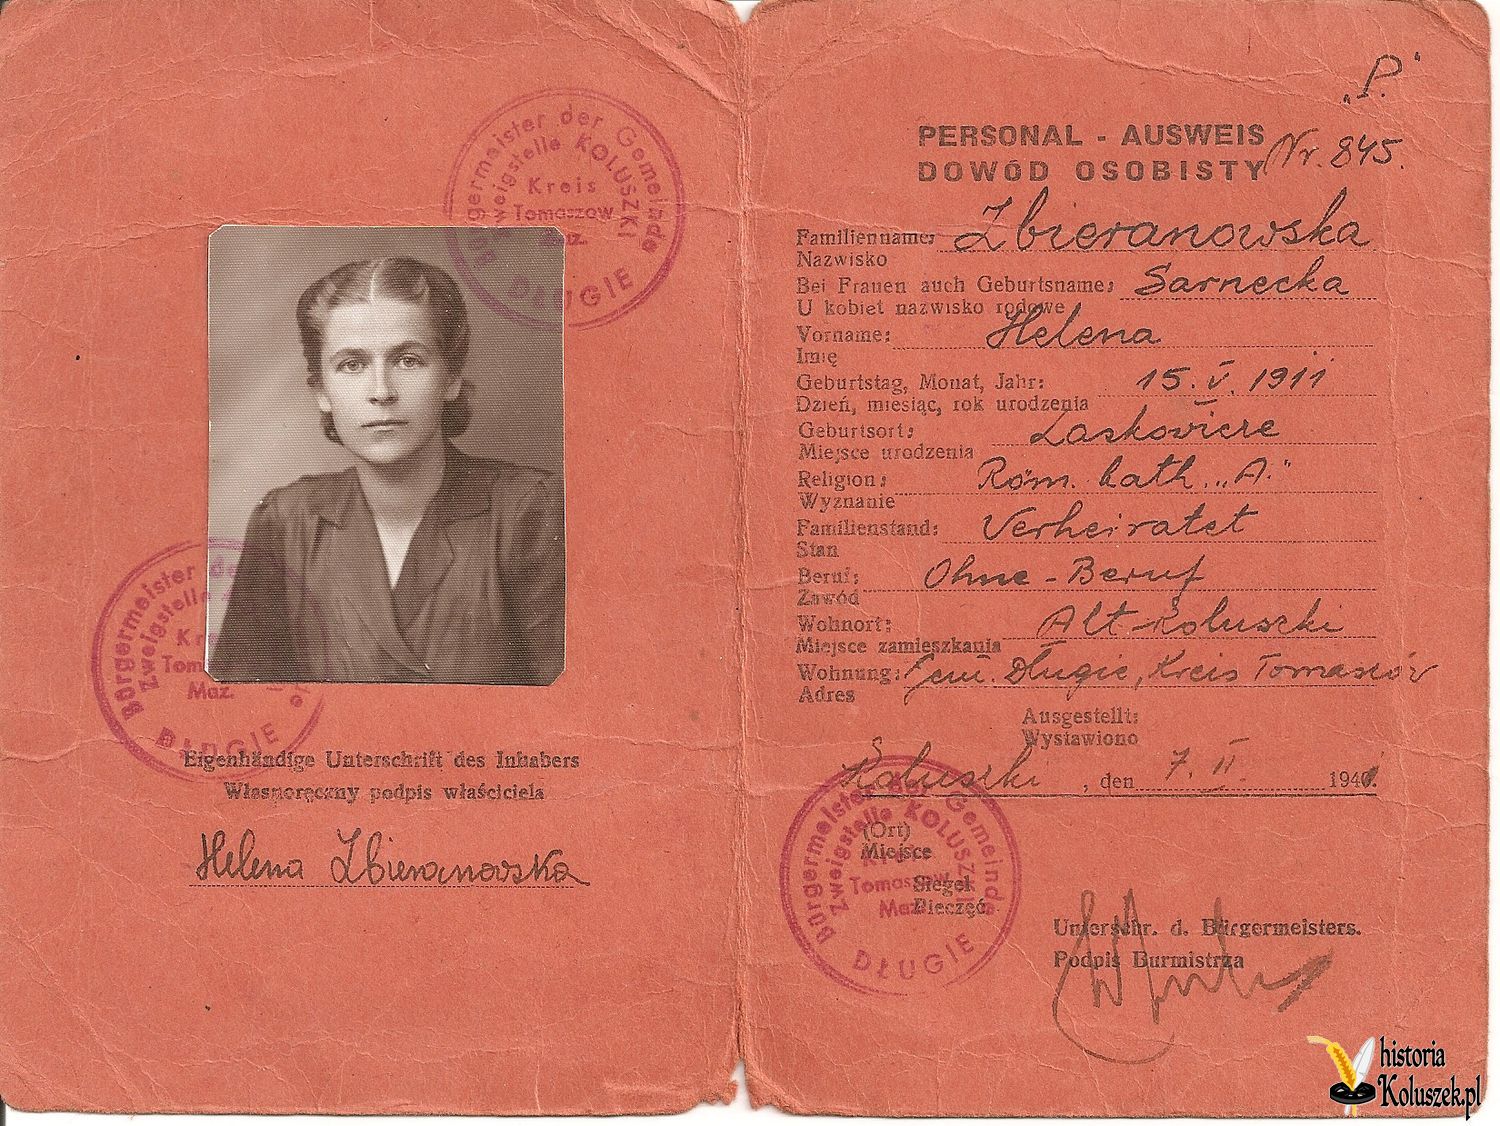 Bürgermeister der Gemeinde
Zweigstelle KOLUSZKI
Kreis
Tomaszow
Maz.
DŁUGIE
Bürgermeister der
Zweigstelle
Tom
Maz.
DŁUGIE
Eigenhändige Unterschrift des Inhabers
Własnoręczny podpis właściciela
Helena Zbieranowska
„P."
PERSONAL - AUSWEIS
DOWÓD OSOBISTY Nr. 845.
Familienname: Zbieranowska
Nazwisko
Bei Frauen auch Geburtsname: Sarnecka
U kobiet nazwisko rodowe
Vorname: Helena
Imię
Geburtstag, Monat, Jahr: 15. V. 1911
Dzień, miesiąc, rok urodzenia
Geburtsort:
Miejsce urodzenia
Religion: Röm. kath. „A."
Wyznanie
Familienstand: Verheiratet
Stan
Beruf: Ohne - Beruf
Zawód
Wohnort: Alt-Koluszki
Miejsce zamieszkania
Wohnung: Gem. Długie, Kreis Tomaszów
Adres
Ausgestellt:
Wystawiono
Koluszki, den 7. II. 1941.
(Ort)
Miejsce
Siegel
Pieczęć
Bürgermeister der Gemeinde
Zweigstelle KOLUSZKI
Kreis
Tomaszow
Maz.
DŁUGIE
Unterschr. d. Bürgermeisters.
Podpis Burmistrza
historia
Koluszek.pl